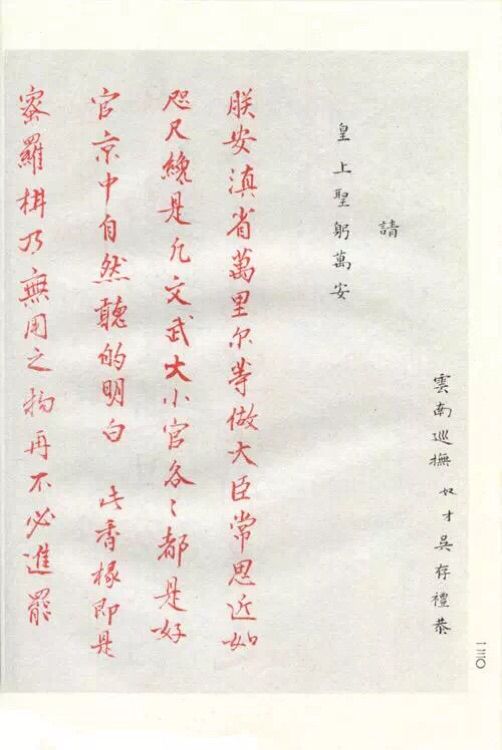 雲南巡撫 奴才吳存禮恭
請
皇上聖躬萬安
朕安滇省萬里尔等做大臣常思近如
咫尺纔是凡文武大小官各〻都是好
官京中自然聽的明白 此香櫞即是
蜜羅柑乃無用之物再不必進罷
一三〇